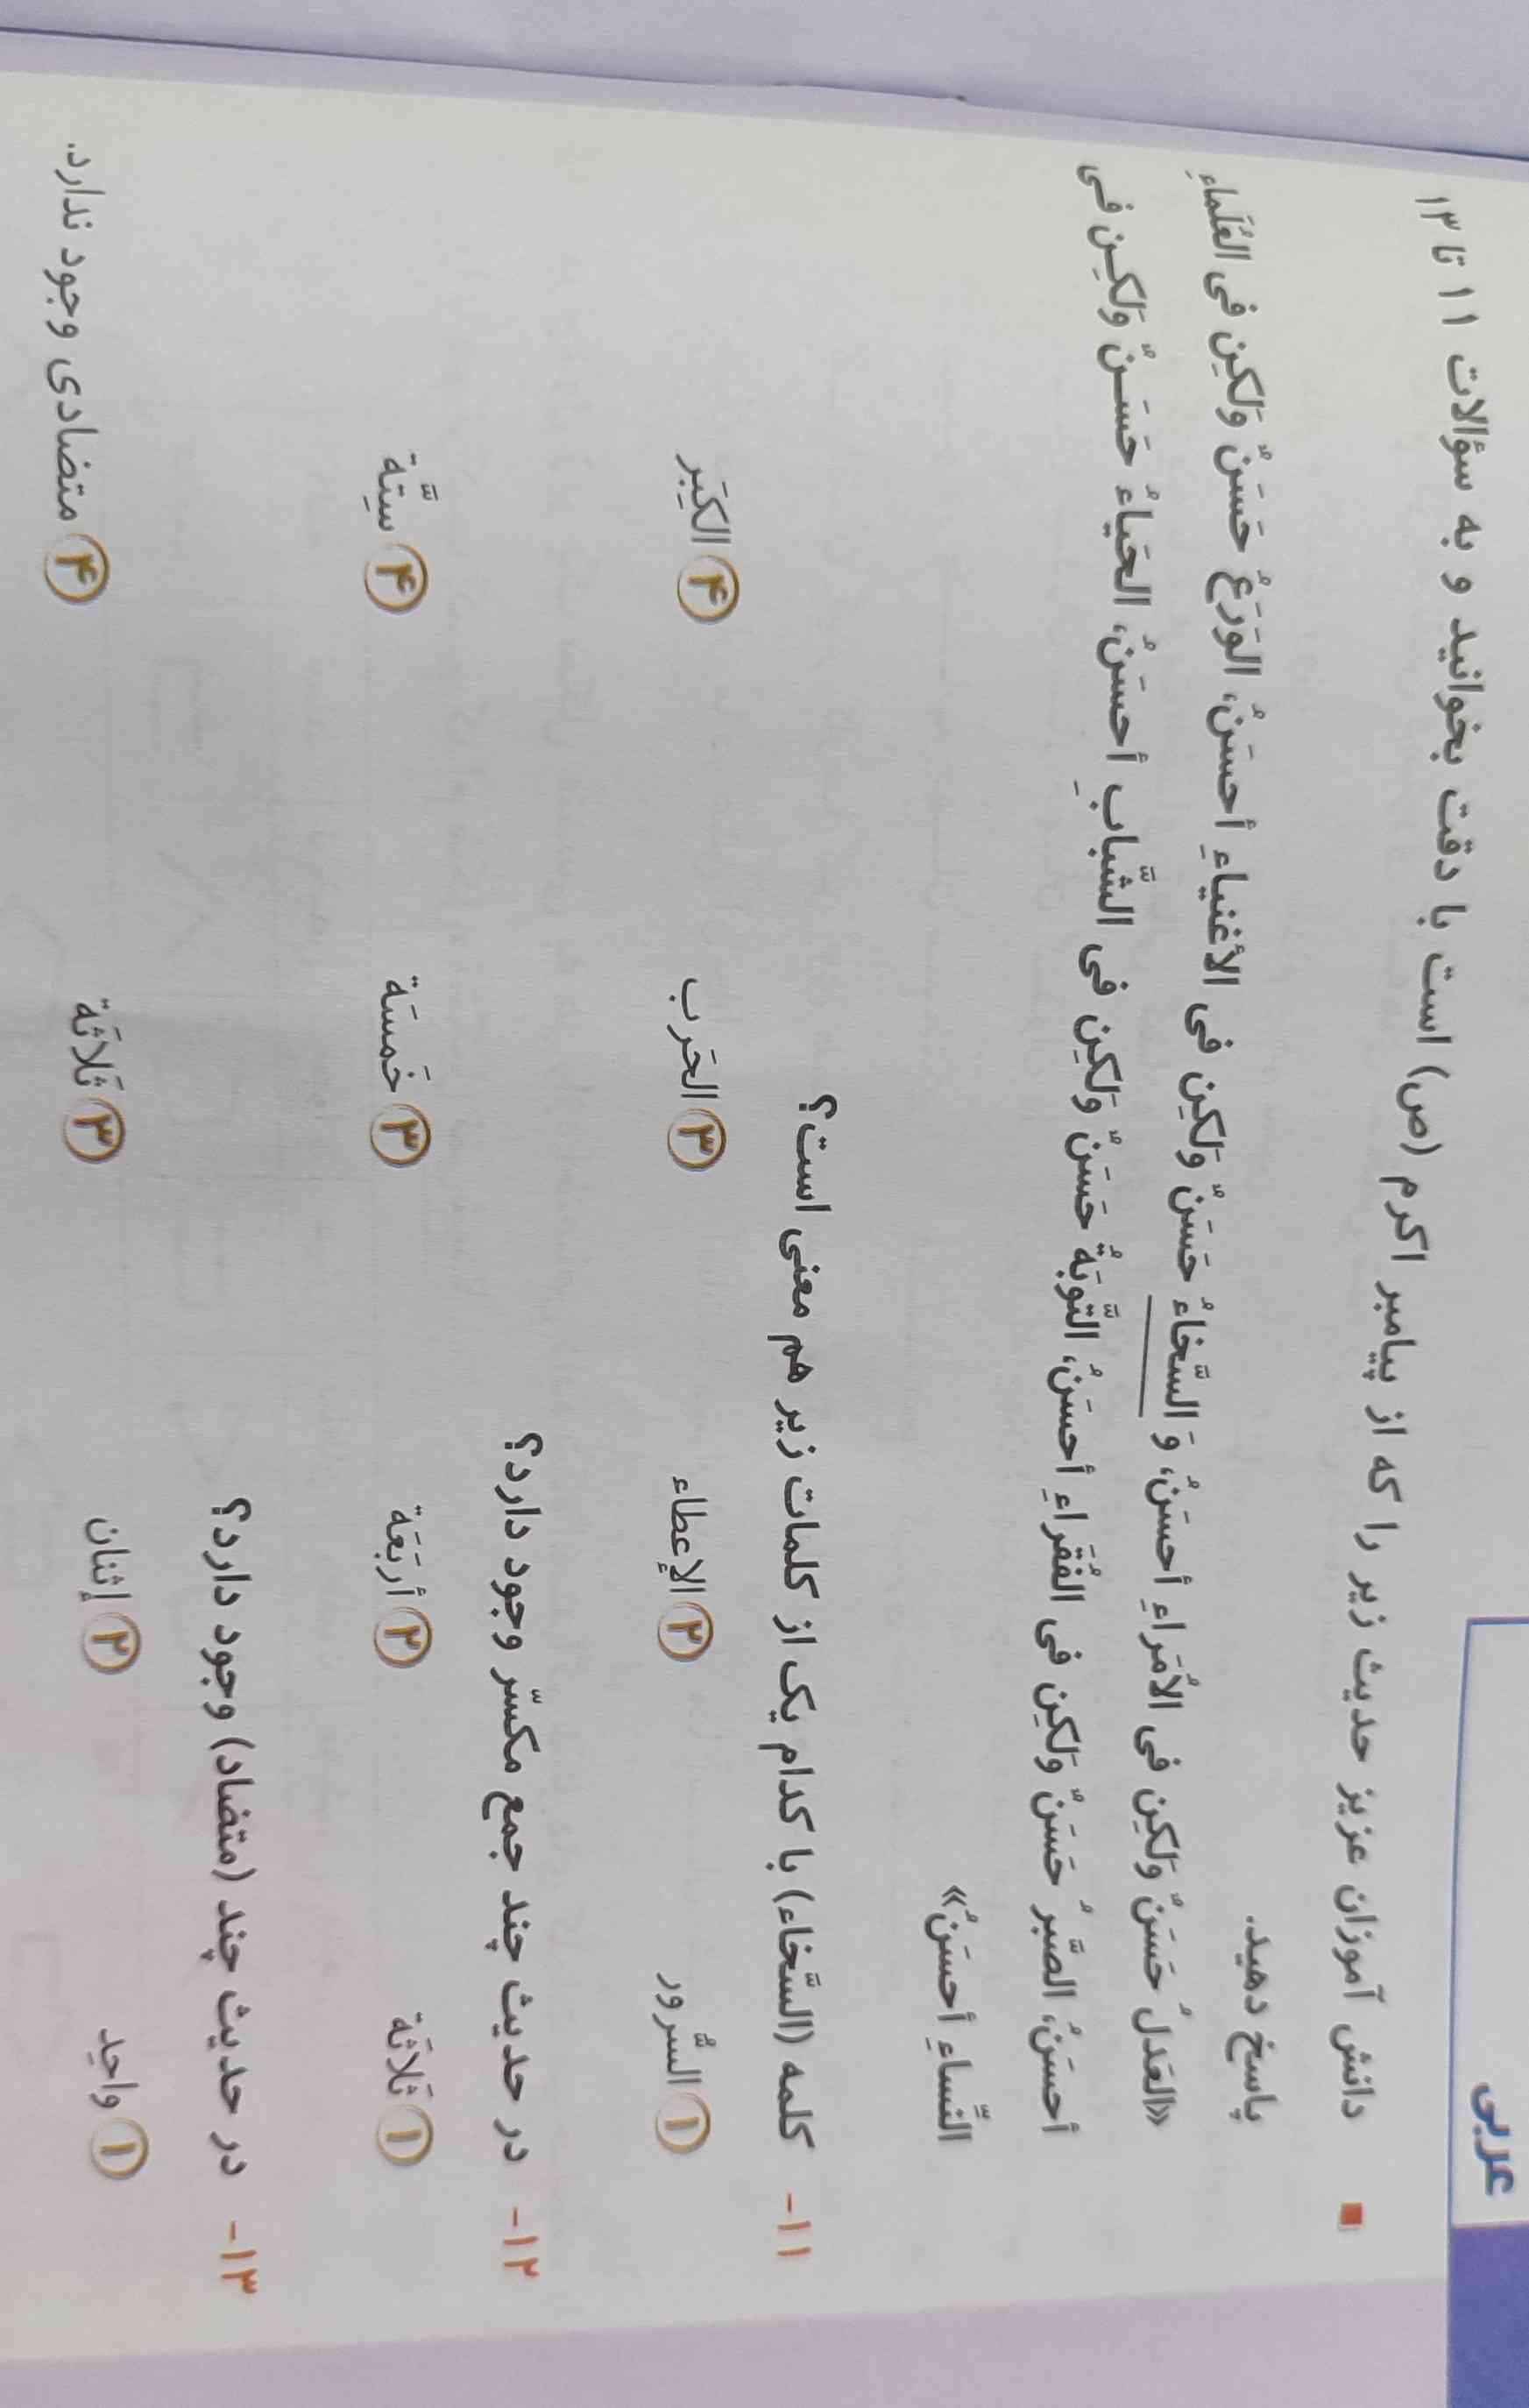 عربی
■ دانش آموزان عزیز حدیث زیر را که از پیامبر اکرم (ص) است با دقت بخوانید و به سؤالات ۱۱ تا ۱۳
پاسخ دهید.
«العَدلُ حَسَنٌ وَلکِن فی الأُمَراءِ أحسَنُ، وَ السَّخاءُ حَسَنٌ وَلکِن فی الأغنیاءِ أحسَنُ، الوَرَعُ حَسَنٌ وَلکِن فی العُلَماءِ
أحسَنُ، الصَّبرُ حَسَنٌ وَلکِن فی الفُقَراءِ أحسَنُ، التَّوبَةُ حَسَنٌ وَلکِن فی الشَّبابِ أحسَنُ، الحَیاءُ حَسَنٌ وَلکِن فی
النِّساءِ أحسَنُ»
۱۱- کلمه (السَّخاء) با کدام یک از کلمات زیر هم معنی است؟
۱ السُّرور ۲ الإعطاء ۳ الحَرب ۴ الکِبَر
۱۲- در حدیث چند جمع مکسّر وجود دارد؟
۱ ثَلاثَة ۲ أربَعَة ۳ خَمسَة ۴ سِتَّة
۱۳- در حدیث چند (متضاد) وجود دارد؟
۱ واحِد ۲ إثنان ۳ ثَلاثَة ۴ متضادی وجود ندارد.